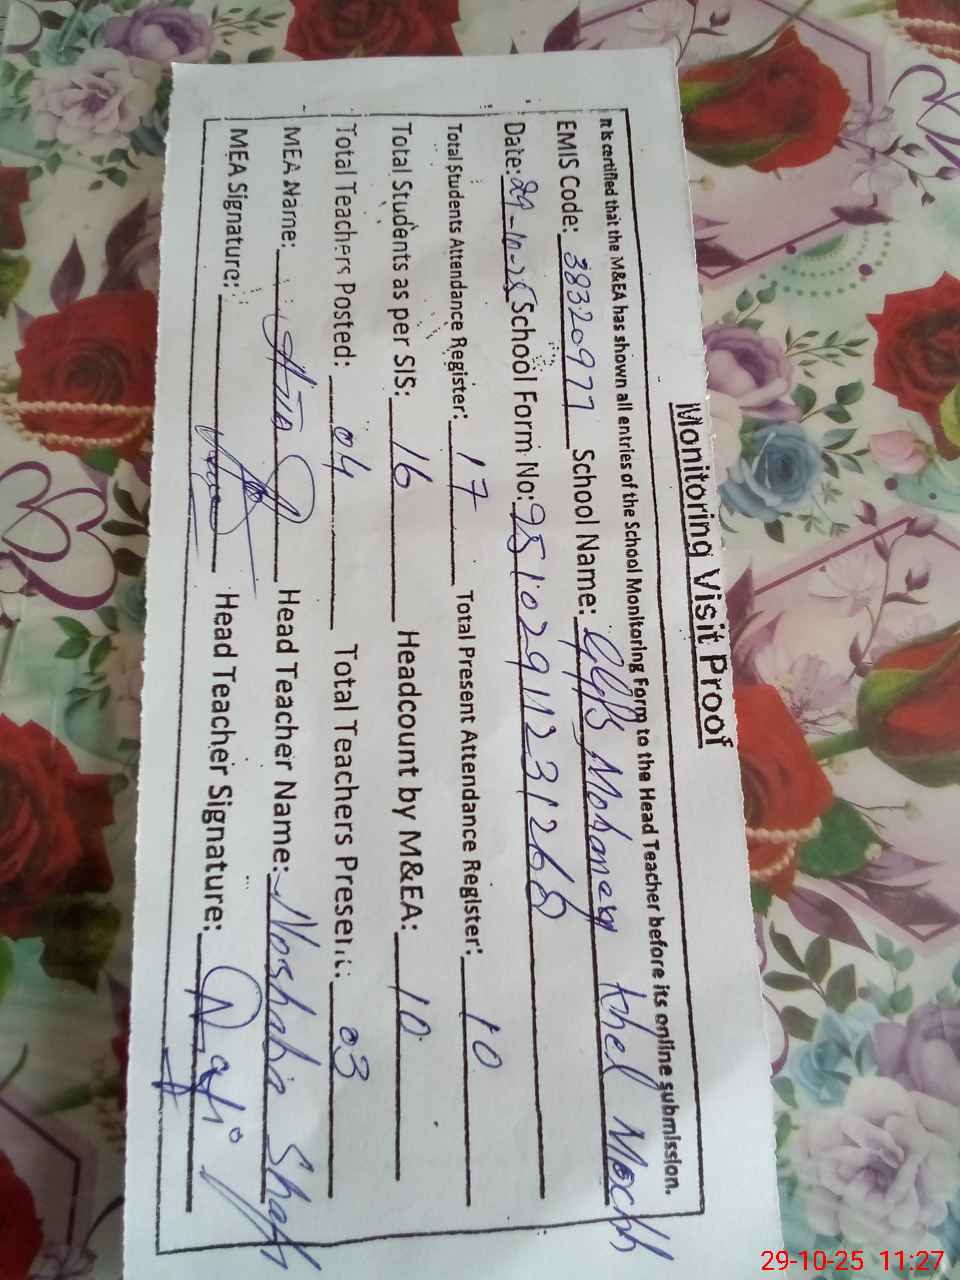 Monitoring Visit Proof
It is certified that the M&EA has shown all entries of the School Monitoring Form to the Head Teacher before its online submission.
EMIS Code: 38320977 School Name: GGPS Mohamew Khel Mochh
Date: 29-10-25 School Form No: 95102911231268
Total Students Attendance Register: 17 Total Present Attendance Register: 10
Total Students as per SIS: 16 Headcount by M&EA: 10
Total Teachers Posted: 04 Total Teachers Present: 03
MEA Name: Head Teacher Name: Noshaba Shah
MEA Signature: Head Teacher Signature:
29-10-25 11:27